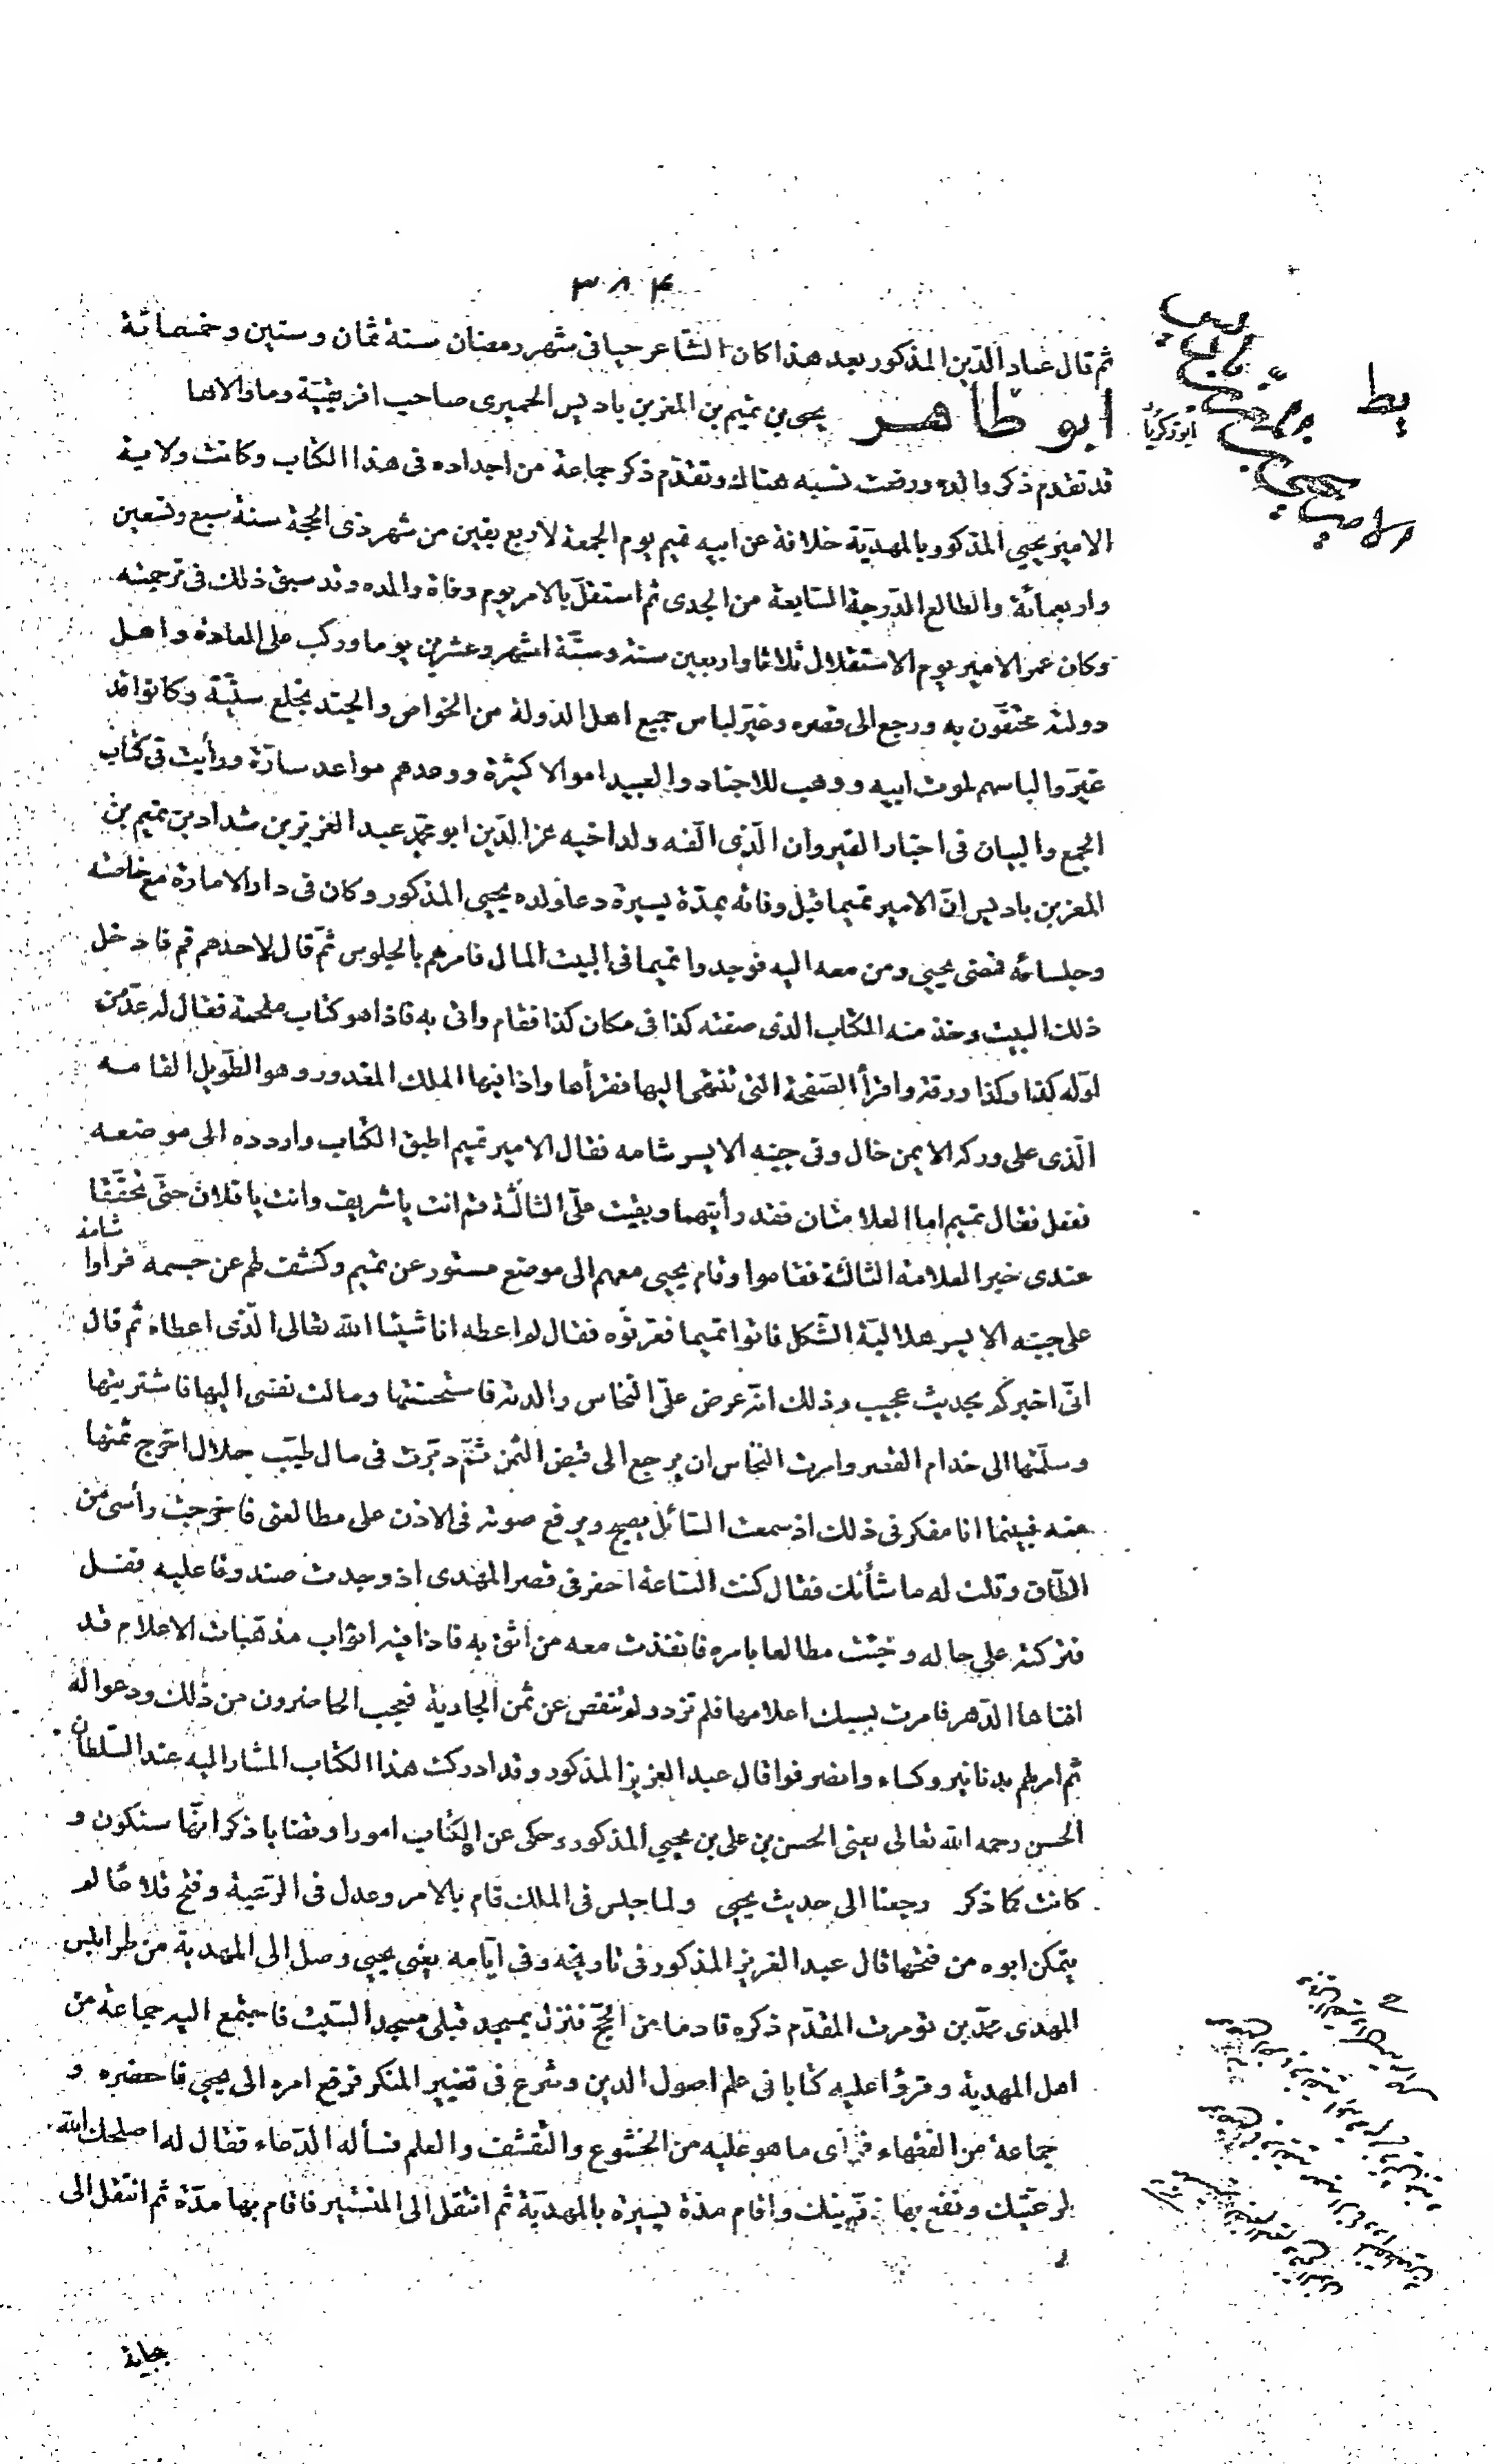 ٣٨٤
ثم قال عماد الدّين المذكور بعد هذا كان الشّاعر حيا فى شهر رمضان سنة ثمان وستين وخمسمائة
ابو طاهر يحيى بن تميم بن المعز بن باديس الحميرى صاحب افريقيّة وما والاها
قد تقدم ذكر والده ورفعت نسبه هناك وتقدّم ذكر جماعة من اجداده فى هذا الكتاب وكانت ولاية
الامير يحيى المذكور بالمهديّة خلافة عن ابيه تميم يوم الجمعة لاربع بقين من شهر ذى الحجة سنة سبع وتسعين
واربعمائة والطالع الدّرجة السّابعة من الجدى ثم استقلّ بالامر يوم وفاة والده وقد سبق ذلك فى ترجمته
وكان عمر الامير يوم الاستقلال ثلاثا واربعين سنة وستّة اشهر وعشرين يوما وركب على العادة واهل
دولته محتفّون به ورجع الى قصره وغيّر لباس جميع اهل الدولة من الخواص والجند بخلع سنيّة وكانوا قد
غيّروا لباسهم لموت ابيه ووهب للاجناد والعبيد اموالا كثيرة ووعدهم مواعد سارّة ورأيت فى كتاب
الجمع والبيان فى اخبار القيروان الّذى الّفه ولد اخيه عز الدّين ابو محمّد عبد العزيز بن شداد بن تميم بن
المعز بن باديس انّ الامير تميما قبل وفاته بمدّة يسيرة دعا ولده يحيى المذكور وكان فى دار الامارة مع خاصّته
وجلسائه فمضى يحيى ومن معه اليه فوجدوا تميما فى البيت المال فامرهم بالجلوس ثمّ قال لاحدهم قم فادخل
ذلك البيت وخذ منه الكتاب الذى صفته كذا فى مكان كذا فقام واتى به فاذا هو كتاب ملحمة فقال له عدّ من
اوّله كذا وكذا ورقة واقرأ الصّفحة التى تنتهى اليها فقرأها واذا فيها الملك المغدور وهو الطّويل القامه
الّذى على وركه الايمن خال وفى جنبه الايسر شامه فقال الامير تميم اطبق الكتاب واردده الى موضعه
ففعل فقال تميم اما العلامتان فقد رأيتهما وبقيت علىّ الثالثة قم انت يا شريف وانت يا فلان حتّى تحقّقا
عندى خبر العلامة الثالثة فقاموا وقام يحيى معهم الى موضع مستور عن تميم وكشف لهم عن جسمه فرأوا شامة
على جنبه الايسر هلاليّة الشّكل فاتوا تميما فعرّفوه فقال لم اعطه انا شيئا الله تعالى الّذى اعطاه ثم قال
انّى اخبركم بحديث عجيب وذلك انّه عرض علىّ النخاس والدته فاستحسنتها ومالت نفسى اليها فاشتريتها
وسلّمتها الى خدام القصر وامرت النخّاس ان يرجع الى قبض الثمن ثمّ دبّرت فى مال طيّب حلال اخرج ثمنها
منه فبينما انا مفكر فى ذلك اذ سمعت السّائل يصيح ويرفع صوته فى الاذن على مطالعتى فاخرجت رأسى من
الطّاق وقلت له ما شأنك فقال كنت السّاعة احفر فى قصر المهدى اذ وجدت صندوقا عليه قفل
فتركته على حاله وجئت مطالعا بامره فانفذت معه من اتى به فاذا فيه اثواب مذهّبات الاعلام قد
افناها الدّهر فامرت بسبك اعلامها فلم تزد ولم تنقص عن ثمن الجارية فعجب الحاضرون من ذلك ودعوا له
ثم امر لهم بدنانير وكساء وانصرفوا قال عبد العزيز المذكور وقد ادركت هذا الكتاب المشار اليه عند السّلطان
الحسن رحمه الله تعالى يعنى الحسن بن على بن يحيى المذكور وحكى عن الكتاب امورا وقضايا ذكر انّها ستكون و
كانت كما ذكر رجعنا الى حديث يحيى ولما جلس فى الملك قام بالامر وعدل فى الرّعية وفتح قلاعا لم
يتمكن ابوه من فتحها قال عبد العزيز المذكور فى تاريخه وفى ايّامه يعنى يحيى وصل الى المهدية من طرابلس
المهدى محمّد بن تومرت المقدّم ذكره قادما من الحجّ فنزل بمسجد قبلى مسجد السّبت فاجتمع اليه جماعة من
اهل المهدية وقرؤا عليه كتابا فى علم اصول الدين وشرع فى تغيير المنكر فرفع امره الى يحيى فاحضره و
جماعة من الفقهاء فرأى ما هو عليه من الخشوع والتقشّف والعلم فسأله الدّعاء فقال له اصلحك الله
لرعيّتك ونفع بها ذرّيتك واقام مدّة يسيرة بالمهديّة ثم انتقل الى المنستير فاقام بها مدّة ثم انتقل الى
بجاية
يط
الامير يحيى بن تميم
ابو زكريا